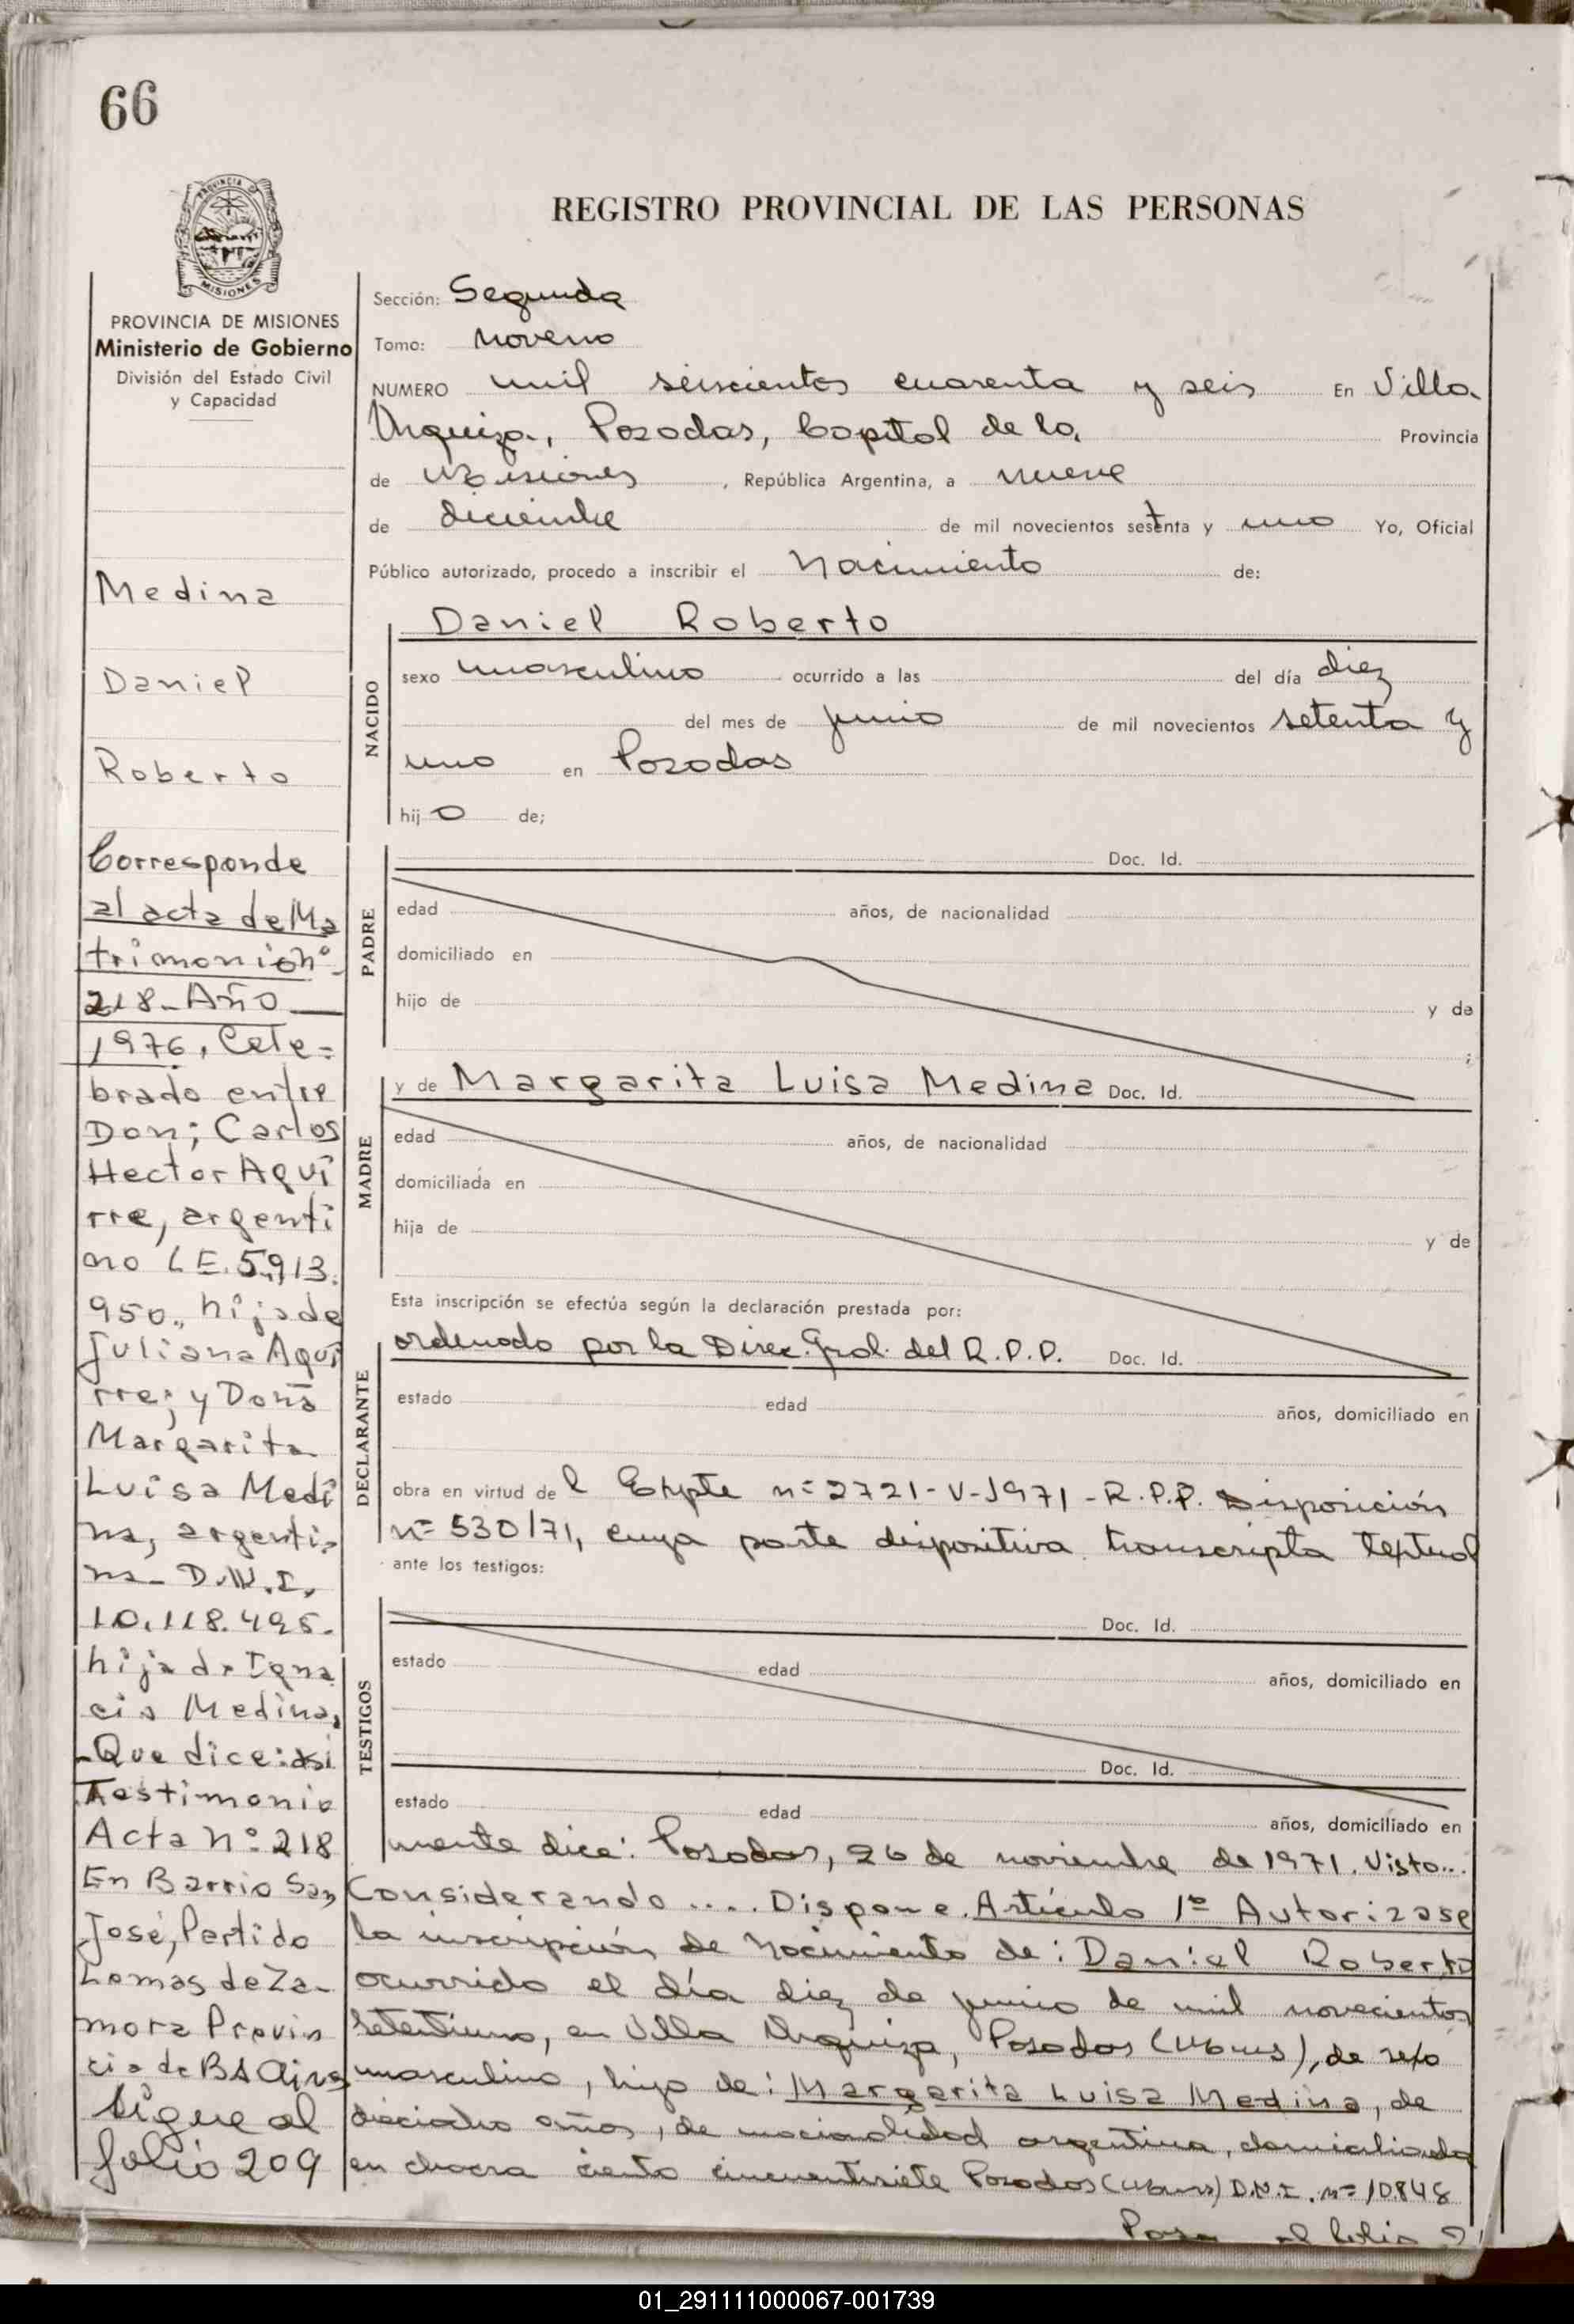 66
PROVINCIA DE
MISIONES
REGISTRO PROVINCIAL DE LAS PERSONAS
PROVINCIA DE MISIONES
Ministerio de Gobierno
División del Estado Civil
y Capacidad
Medina
Daniel
Roberto
Corresponde
al acta de Ma
trimonio nº
218- Año
1976, Cele=
brado entre
Don; Carlos
Hector Agui
rre, argenti
no L.E. 5.913.
950., hijo de
Juliana Agui
rre; y Doña
Margarita
Luisa Medi
na, argenti=
na- D.N.I.
10.118.495.
hija de Igna
cia Medina,
-Que dice: asi
Testimonio
Acta nº 218
En Barrio San
José, Partido
Lomas de Za-
mora Provin
cia de BS Aires
Sigue al
folio 209
Sección: Segunda
Tomo: Noveno
NUMERO mil seiscientos cuarenta y seis En Villa
Urquiza, Posadas, Capital de la Provincia
de Misiones, República Argentina, a nueve
de diciembre de mil novecientos setenta y uno Yo, Oficial
Público autorizado, procedo a inscribir el Nacimiento de:
Daniel Roberto
NACIDO
sexo masculino ocurrido a las del día diez
del mes de junio de mil novecientos setenta y
uno en Posadas
hijo de;
PADRE
Doc. Id.
edad años, de nacionalidad
domiciliado en
hijo de y de
;
MADRE
y de Margarita Luisa Medina Doc. Id.
edad años, de nacionalidad
domiciliada en
hija de y de
Esta inscripción se efectúa según la declaración prestada por:
DECLARANTE
ordenado por la Direc. Gral. del R.P.P. Doc. Id.
estado edad años, domiciliado en
obra en virtud del Expte nº 2721-V-1971-R.P.P. Disposición
nº 530/71, cuya parte dispositiva transcripta textual
ante los testigos:
TESTIGOS
Doc. Id.
estado edad años, domiciliado en
Doc. Id.
estado edad años, domiciliado en
mente dice: Posadas, 26 de noviembre de 1971. Visto...
Considerando .... Dispone. Artículo 1º Autorizase
la inscripción de nacimiento de: Daniel Roberto
ocurrido el día diez de junio de mil novecientos
setentiuno, en Villa Urquiza, Posadas (Mones), de sexo
masculino, hijo de: Margarita Luisa Medina, de
dieciocho años, de nacionalidad argentina, domiciliada
en chacra ciento cincuentisiete Posadas (Mones) D.N.I. nº 10.848
Pasa al folio
01_291111000067-001739